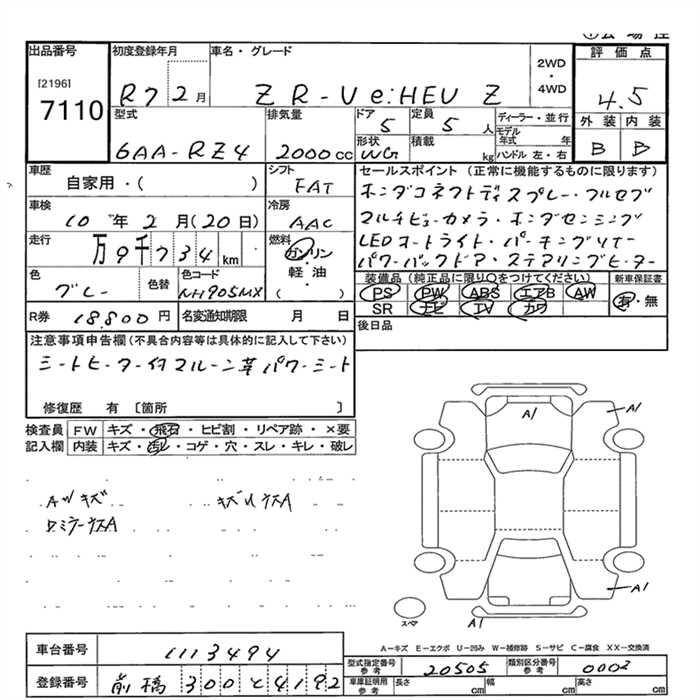 出品番号 初度登録年月 車名・グレード 2WD・4WD 評価点
[2196]
7110 R7 2月 ZR-V e:HEV Z 4.5
型式 排気量 ドア 定員 ディーラー・並行 外装 内装
6AA-RZ4 2000cc 5 5人 モデル年式 年 B B
形状 積載
WG kg ハンドル 左・右
車歴 シフト セールスポイント (正常に機能するものに限ります)
自家用・( ) FAT ホンダコネクトディスプレー・フルセグ
車検 冷房 マルチビューカメラ・ホンダセンシング
10年2月(20日) AAC LEDオートライト・パーキングリヤー
走行 燃料 パワーバックドア・ステアリングヒーター
万9千734km ガソリン・軽油・( )
色 色替 色コード 装備品 (純正品に限り○をつけてください) 新車保証書
グレー NH905MX PS PW ABS エアB AW 有・無
SR ナビ TV カワ
R券 18,800円 名変通知期限 月 日 後日品
注意事項申告欄 (不具合内容等は具体的に記入して下さい)
シートヒーター付マルーン革パワーシート
修復歴 有 〔箇所 〕
検査員 FW キズ・飛石・ヒビ割・リペア跡・×要
記入欄 内装 キズ・汚レ・コゲ・穴・スレ・キレ・破レ
A1
A1
A1
A1
スペア
A-キズ E-エクボ U-凹み W-補修跡 S-サビ C-腐食 XX-交換済
車台番号 1113494
型式指定番号 参考 20505 類別区分番号 参考 0002
登録番号 前橋 300 と 4192
車庫証明用 参考 長さ cm 幅 cm 高さ cm